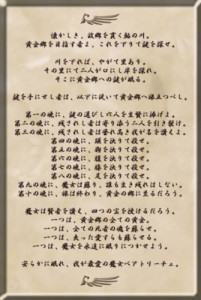 懐かしき、故郷を貫く鮎の川。
黄金郷を目指す者よ、これを下りて鍵を探せ。
川を下れば、やがて里あり。
その里にて二人が口にし岸を探れ。
そこに黄金郷への鍵が眠る。
鍵を手にせし者は、以下に従いて黄金郷へ旅立つべし。
第一の晩に、鍵の選びし六人を生贄に捧げよ。
第二の晩に、残されし者は寄り添う二人を引き裂け。
第三の晩に、残されし者は誉れ高き我が名を讃えよ。
第四の晩に、頭を抉りて殺せ。
第五の晩に、胸を抉りて殺せ。
第六の晩に、腹を抉りて殺せ。
第七の晩に、膝を抉りて殺せ。
第八の晩に、足を抉りて殺せ。
第九の晩に、魔女は蘇り、誰も生き残れはしない。
第十の晩に、旅は終わり、黄金の郷に至るだろう。
魔女は賢者を讃え、四つの宝を授けるだろう。
一つは、黄金郷の全ての黄金。
一つは、全ての死者の魂を蘇らせ。
一つは、失った愛すらも蘇らせる。
一つは、魔女を永遠に眠りにつかせよう。
安らかに眠れ、我が最愛の魔女ベアトリーチェ。